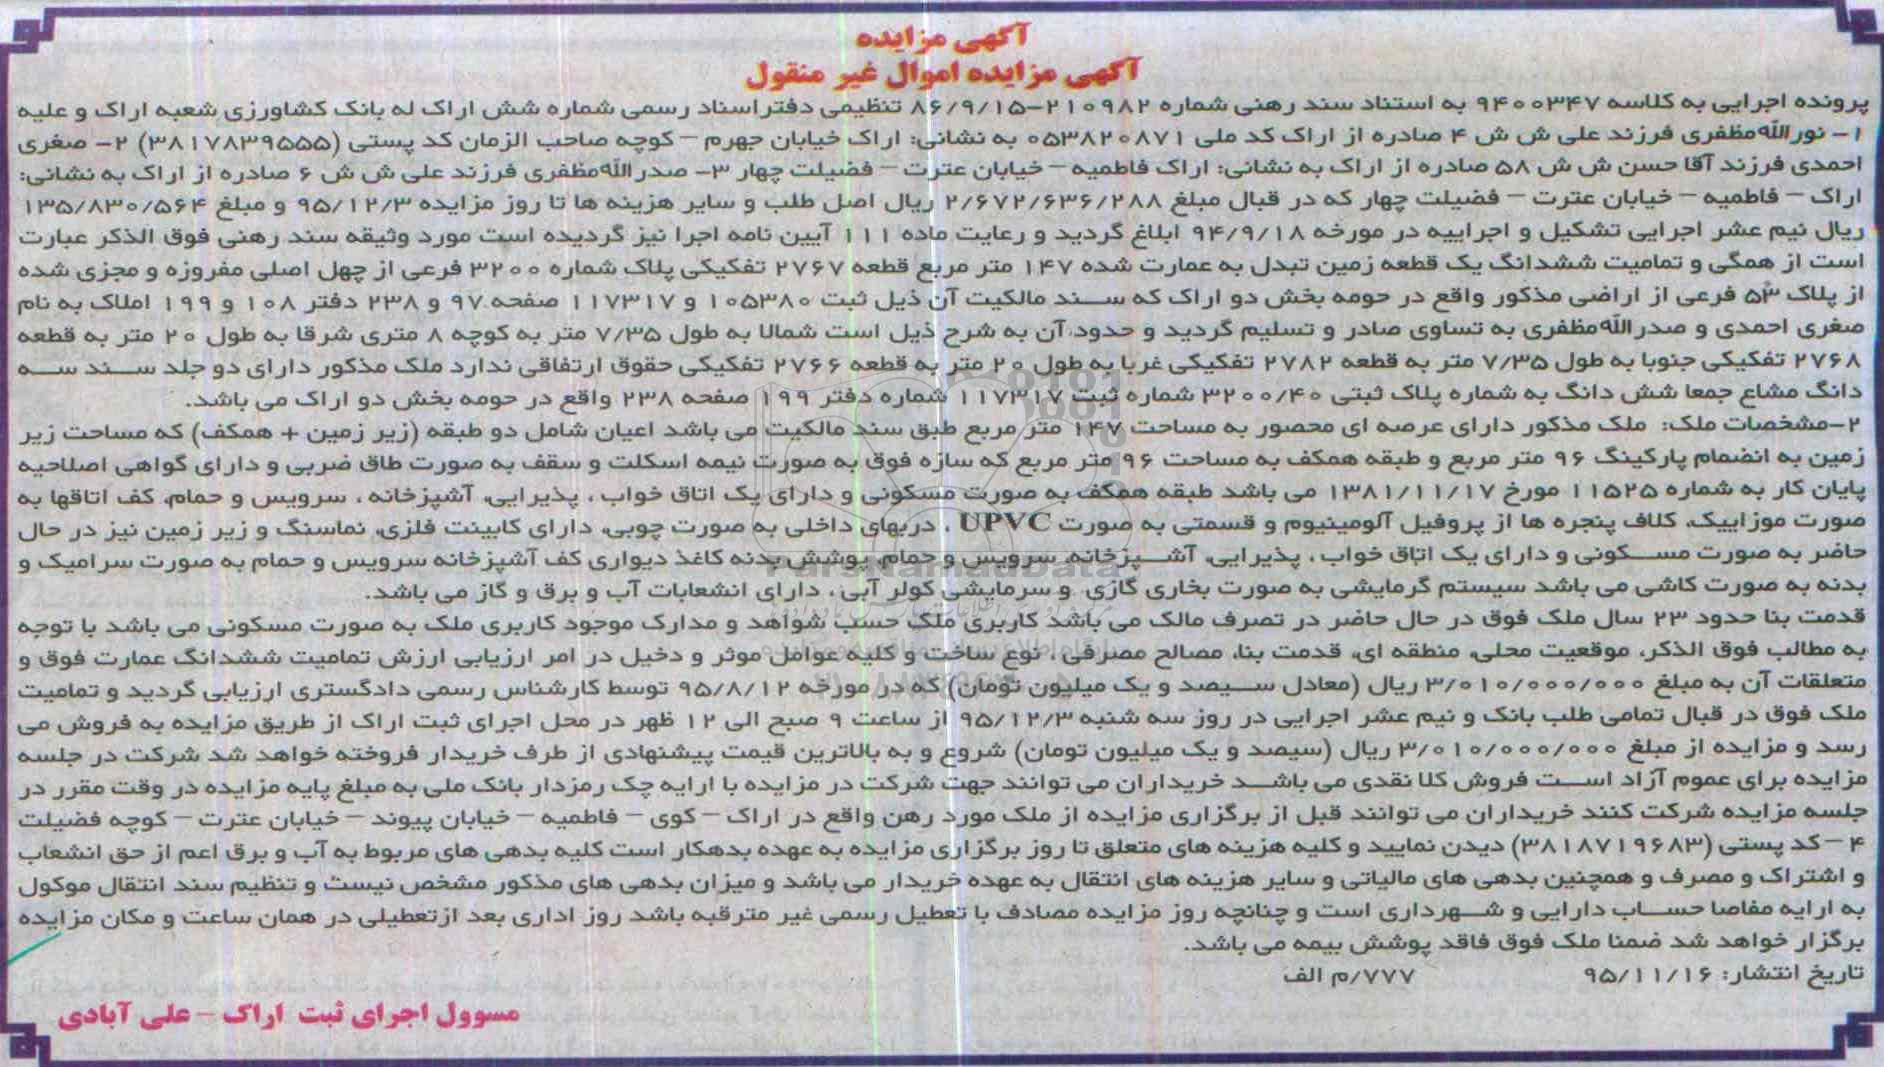 آگهی مزایده
آگهی مزایده اموال غیر منقول
پرونده اجرایی به کلاسه ۹۴۰۰۳۴۷ به استناد سند رهنی شماره ۲۱۰۹۸۲-۸۶/۹/۱۵ تنظیمی دفتراسناد رسمی شماره شش اراک له بانک کشاورزی شعبه اراک و علیه
۱- نورالله مظفری فرزند علی ش ش ۴ صادره از اراک کد ملی ۰۵۳۸۲۰۸۷۱ به نشانی: اراک خیابان جهرم – کوچه صاحب الزمان کد پستی (۳۸۱۷۸۳۹۵۵۵) ۲- صغری
احمدی فرزند آقا حسن ش ش ۵۸ صادره از اراک به نشانی: اراک فاطمیه – خیابان عترت – فضیلت چهار ۳- صدرالله مظفری فرزند علی ش ش ۶ صادره از اراک به نشانی:
اراک – فاطمیه – خیابان عترت – فضیلت چهار که در قبال مبلغ ۲/۶۷۲/۶۳۶/۲۸۸ ریال اصل طلب و سایر هزینه ها تا روز مزایده ۹۵/۱۲/۳ و مبلغ ۱۳۵/۸۳۰/۵۶۴
ریال نیم عشر اجرایی تشکیل و اجراییه در مورخه ۹۴/۹/۱۸ ابلاغ گردید و رعایت ماده ۱۱۱ آیین نامه اجرا نیز گردیده است مورد وثیقه سند رهنی فوق الذکر عبارت
است از همگی و تمامیت ششدانگ یک قطعه زمین تبدل به عمارت شده ۱۴۷ متر مربع قطعه ۲۷۶۷ تفکیکی پلاک شماره ۳۲۰۰ فرعی از چهل اصلی مفروزه و مجزی شده
از پلاک ۵۳ فرعی از اراضی مذکور واقع در حومه بخش دو اراک که سند مالکیت آن ذیل ثبت ۱۰۵۳۸۰ و ۱۱۷۳۱۷ صفحه ۹۷ و ۲۳۸ دفتر ۱۰۸ و ۱۹۹ املاک به نام
صغری احمدی و صدرالله مظفری به تساوی صادر و تسلیم گردید و حدود آن به شرح ذیل است شمالا به طول ۷/۳۵ متر به کوچه ۸ متری شرقا به طول ۲۰ متر به قطعه
۲۷۶۸ تفکیکی جنوبا به طول ۷/۳۵ متر به قطعه ۲۷۸۲ تفکیکی غربا به طول ۲۰ متر به قطعه ۲۷۶۶ تفکیکی حقوق ارتفاقی ندارد ملک مذکور دارای دو جلد سند سه
دانگ مشاع جمعا شش دانگ به شماره پلاک ثبتی ۳۲۰۰/۴۰ شماره ثبت ۱۱۷۳۱۷ شماره دفتر ۱۹۹ صفحه ۲۳۸ واقع در حومه بخش دو اراک می باشد.
۲-مشخصات ملک: ملک مذکور دارای عرصه ای محصور به مساحت ۱۴۷ متر مربع طبق سند مالکیت می باشد اعیان شامل دو طبقه (زیر زمین + همکف) که مساحت زیر
زمین به انضمام پارکینگ ۹۶ متر مربع و طبقه همکف به مساحت ۹۶ متر مربع که سازه فوق به صورت نیمه اسکلت و سقف به صورت طاق ضربی و دارای گواهی اصلاحیه
پایان کار به شماره ۱۱۵۲۵ مورخ ۱۳۸۱/۱۱/۱۷ می باشد طبقه همکف به صورت مسکونی و دارای یک اتاق خواب ، پذیرایی، آشپزخانه ، سرویس و حمام، کف اتاقها به
صورت موزاییک، کلاف پنجره ها از پروفیل آلومینیوم و قسمتی به صورت UPVC ، دربهای داخلی به صورت چوبی، دارای کابینت فلزی، نماسنگ و زیر زمین نیز در حال
حاضر به صورت مسکونی و دارای یک اتاق خواب ، پذیرایی، آشپزخانه، سرویس و حمام، پوشش بدنه کاغذ دیواری کف آشپزخانه سرویس و حمام به صورت سرامیک و
بدنه به صورت کاشی می باشد سیستم گرمایشی به صورت بخاری گازی و سرمایشی کولر آبی ، دارای انشعابات آب و برق و گاز می باشد.
قدمت بنا حدود ۲۳ سال ملک فوق در حال حاضر در تصرف مالک می باشد کاربری ملک حسب شواهد و مدارک موجود کاربری ملک به صورت مسکونی می باشد با توجه
به مطالب فوق الذکر، موقعیت محلی، منطقه ای، قدمت بنا، مصالح مصرفی ، نوع ساخت و کلیه عوامل موثر و دخیل در امر ارزیابی ارزش تمامیت ششدانگ عمارت فوق و
متعلقات آن به مبلغ ۳/۰۱۰/۰۰۰/۰۰۰ ریال (معادل سیصد و یک میلیون تومان) که در مورخه ۹۵/۸/۱۲ توسط کارشناس رسمی دادگستری ارزیابی گردید و تمامیت
ملک فوق در قبال تمامی طلب بانک و نیم عشر اجرایی در روز سه شنبه ۹۵/۱۲/۳ از ساعت ۹ صبح الی ۱۲ ظهر در محل اجرای ثبت اراک از طریق مزایده به فروش می
رسد و مزایده از مبلغ ۳/۰۱۰/۰۰۰/۰۰۰ ریال (سیصد و یک میلیون تومان) شروع و به بالاترین قیمت پیشنهادی از طرف خریدار فروخته خواهد شد شرکت در جلسه
مزایده برای عموم آزاد است فروش کلا نقدی می باشد خریداران می توانند جهت شرکت در مزایده با ارایه چک رمزدار بانک ملی به مبلغ پایه مزایده در وقت مقرر در
جلسه مزایده شرکت کنند خریداران می توانند قبل از برگزاری مزایده از ملک مورد رهن واقع در اراک – کوی – فاطمیه – خیابان پیوند – خیابان عترت – کوچه فضیلت
۴ – کد پستی (۳۸۱۸۷۱۹۶۸۳) دیدن نمایید و کلیه هزینه های متعلق تا روز برگزاری مزایده به عهده بدهکار است کلیه بدهی های مربوط به آب و برق اعم از حق انشعاب
و اشتراک و مصرف و همچنین بدهی های مالیاتی و سایر هزینه های انتقال به عهده خریدار می باشد و میزان بدهی های مذکور مشخص نیست و تنظیم سند انتقال موکول
به ارایه مفاصا حساب دارایی و شهرداری است و چنانچه روز مزایده مصادف با تعطیل رسمی غیر مترقبه باشد روز اداری بعد ازتعطیلی در همان ساعت و مکان مزایده
برگزار خواهد شد ضمنا ملک فوق فاقد پوشش بیمه می باشد.
تاریخ انتشار: ۹۵/۱۱/۱۶ ۷۷۷/م الف
مسوول اجرای ثبت اراک – علی آبادی
ParsNamadData